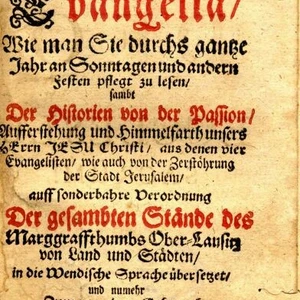 Evangelia/
Wie man Sie durchs gantze
Jahr an Sonntagen und andern
Festen pflegt zu lesen/
sambt
Der Historien von der Passion/
Aufferstehung und Himmelfarth unsers
HErrn JESU Christi/ aus denen vier
Evangelisten/ wie auch von der Zerstöhrung
der Stadt Jerusalem/
auff sonderbahre Verordnung
Der gesambten Stände des
Marggraffthumbs Ober-Lausitz
von Land und Städten/
in die Wendische Sprache übersetzet/
und numehr